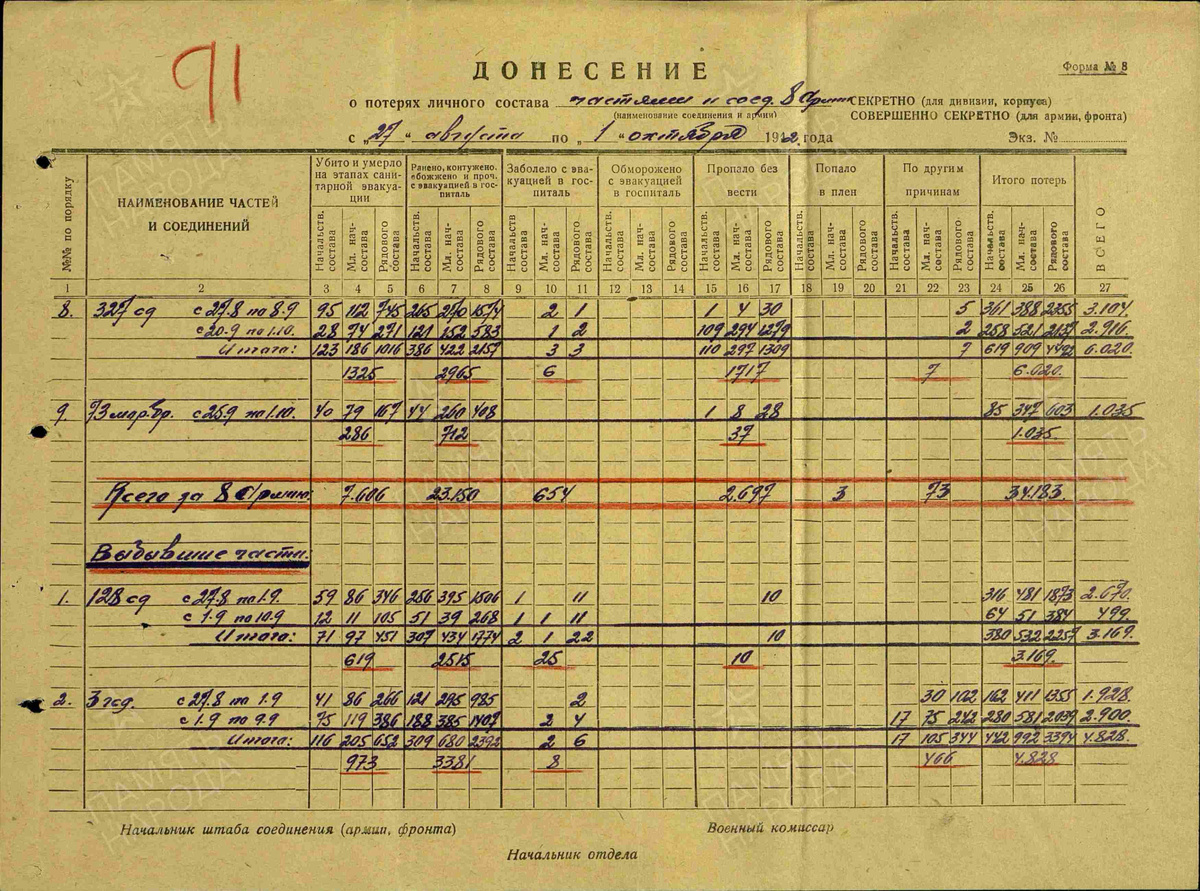 91
ДОНЕСЕНИЕ
Форма № 8
о потерях личного состава частями и соед. 8 Армии
(наименование соединения и армии)
СЕКРЕТНО (для дивизии, корпуса)
СОВЕРШЕННО СЕКРЕТНО (для армии, фронта)
с „27" августа по „1" октября 1942 года
Экз. №
№№ по порядку
НАИМЕНОВАНИЕ ЧАСТЕЙ И СОЕДИНЕНИЙ
Убито и умерло на этапах санитарной эвакуации
Ранено, контужено, обожжено и проч. с эвакуацией в госпиталь
Заболело с эвакуацией в госпиталь
Обморожено с эвакуацией в госпиталь
Пропало без вести
Попало в плен
По другим причинам
Итого потерь
ВСЕГО
Начальств. состава Мл. нач-состава Рядового состава Начальств. состава Мл. нач-состава Рядового состава Начальств. состава Мл. нач-состава Рядового состава Начальств. состава Мл. нач-состава Рядового состава Начальств. состава Мл. нач-состава Рядового состава Начальств. состава Мл. нач-состава Рядового состава Начальств. состава Мл. нач-состава Рядового состава Начальств. состава Мл. нач-состава Рядового состава
1 2 3 4 5 6 7 8 9 10 11 12 13 14 15 16 17 18 19 20 21 22 23 24 25 26 27
8. 327 сд с 27.8 по 8.9 95 112 745 265 270 1574 2 1 1 4 30 5 361 388 2355 3.104.
с 20.9 по 1.10. 28 74 271 121 152 583 1 2 109 294 1279 2 258 521 2137 2.916.
Итого: 123 186 1016 386 422 2157 3 3 110 297 1309 7 619 909 4492 6.020.
1325 2965 6 1717 7 6.020.
9. 73 мор. бр. с 25.9 по 1.10. 40 79 167 44 260 408 1 8 28 85 347 603 1.035
286 712 37 1.035.
Всего за 8 Армию: 7.606 23.150 654 2.697 3 73 34.183.
Выбывшие части.
1. 128 сд с 27.8 по 1.9. 59 86 346 256 395 1506 1 11 10 316 481 1873 2.670.
с 1.9 по 10.9 12 11 105 51 39 268 1 1 11 64 51 384 499.
Итого: 71 97 451 307 434 1774 2 1 22 10 380 532 2257 3.169.
619 2515 25 10 3.169.
2. 3 гсд. с 27.8 по 1.9 41 86 266 121 295 985 2 30 102 162 411 1355 1.928.
с 1.9 по 9.9 75 119 386 188 385 1407 2 4 17 75 242 280 581 2039 2.900.
Итого: 116 205 652 309 680 2392 2 6 17 105 344 442 992 3394 4.828.
973 3381 8 466 4.828.
Начальник штаба соединения (армии, фронта)
Военный комиссар
Начальник отдела
ПАМЯТЬ НАРОДА